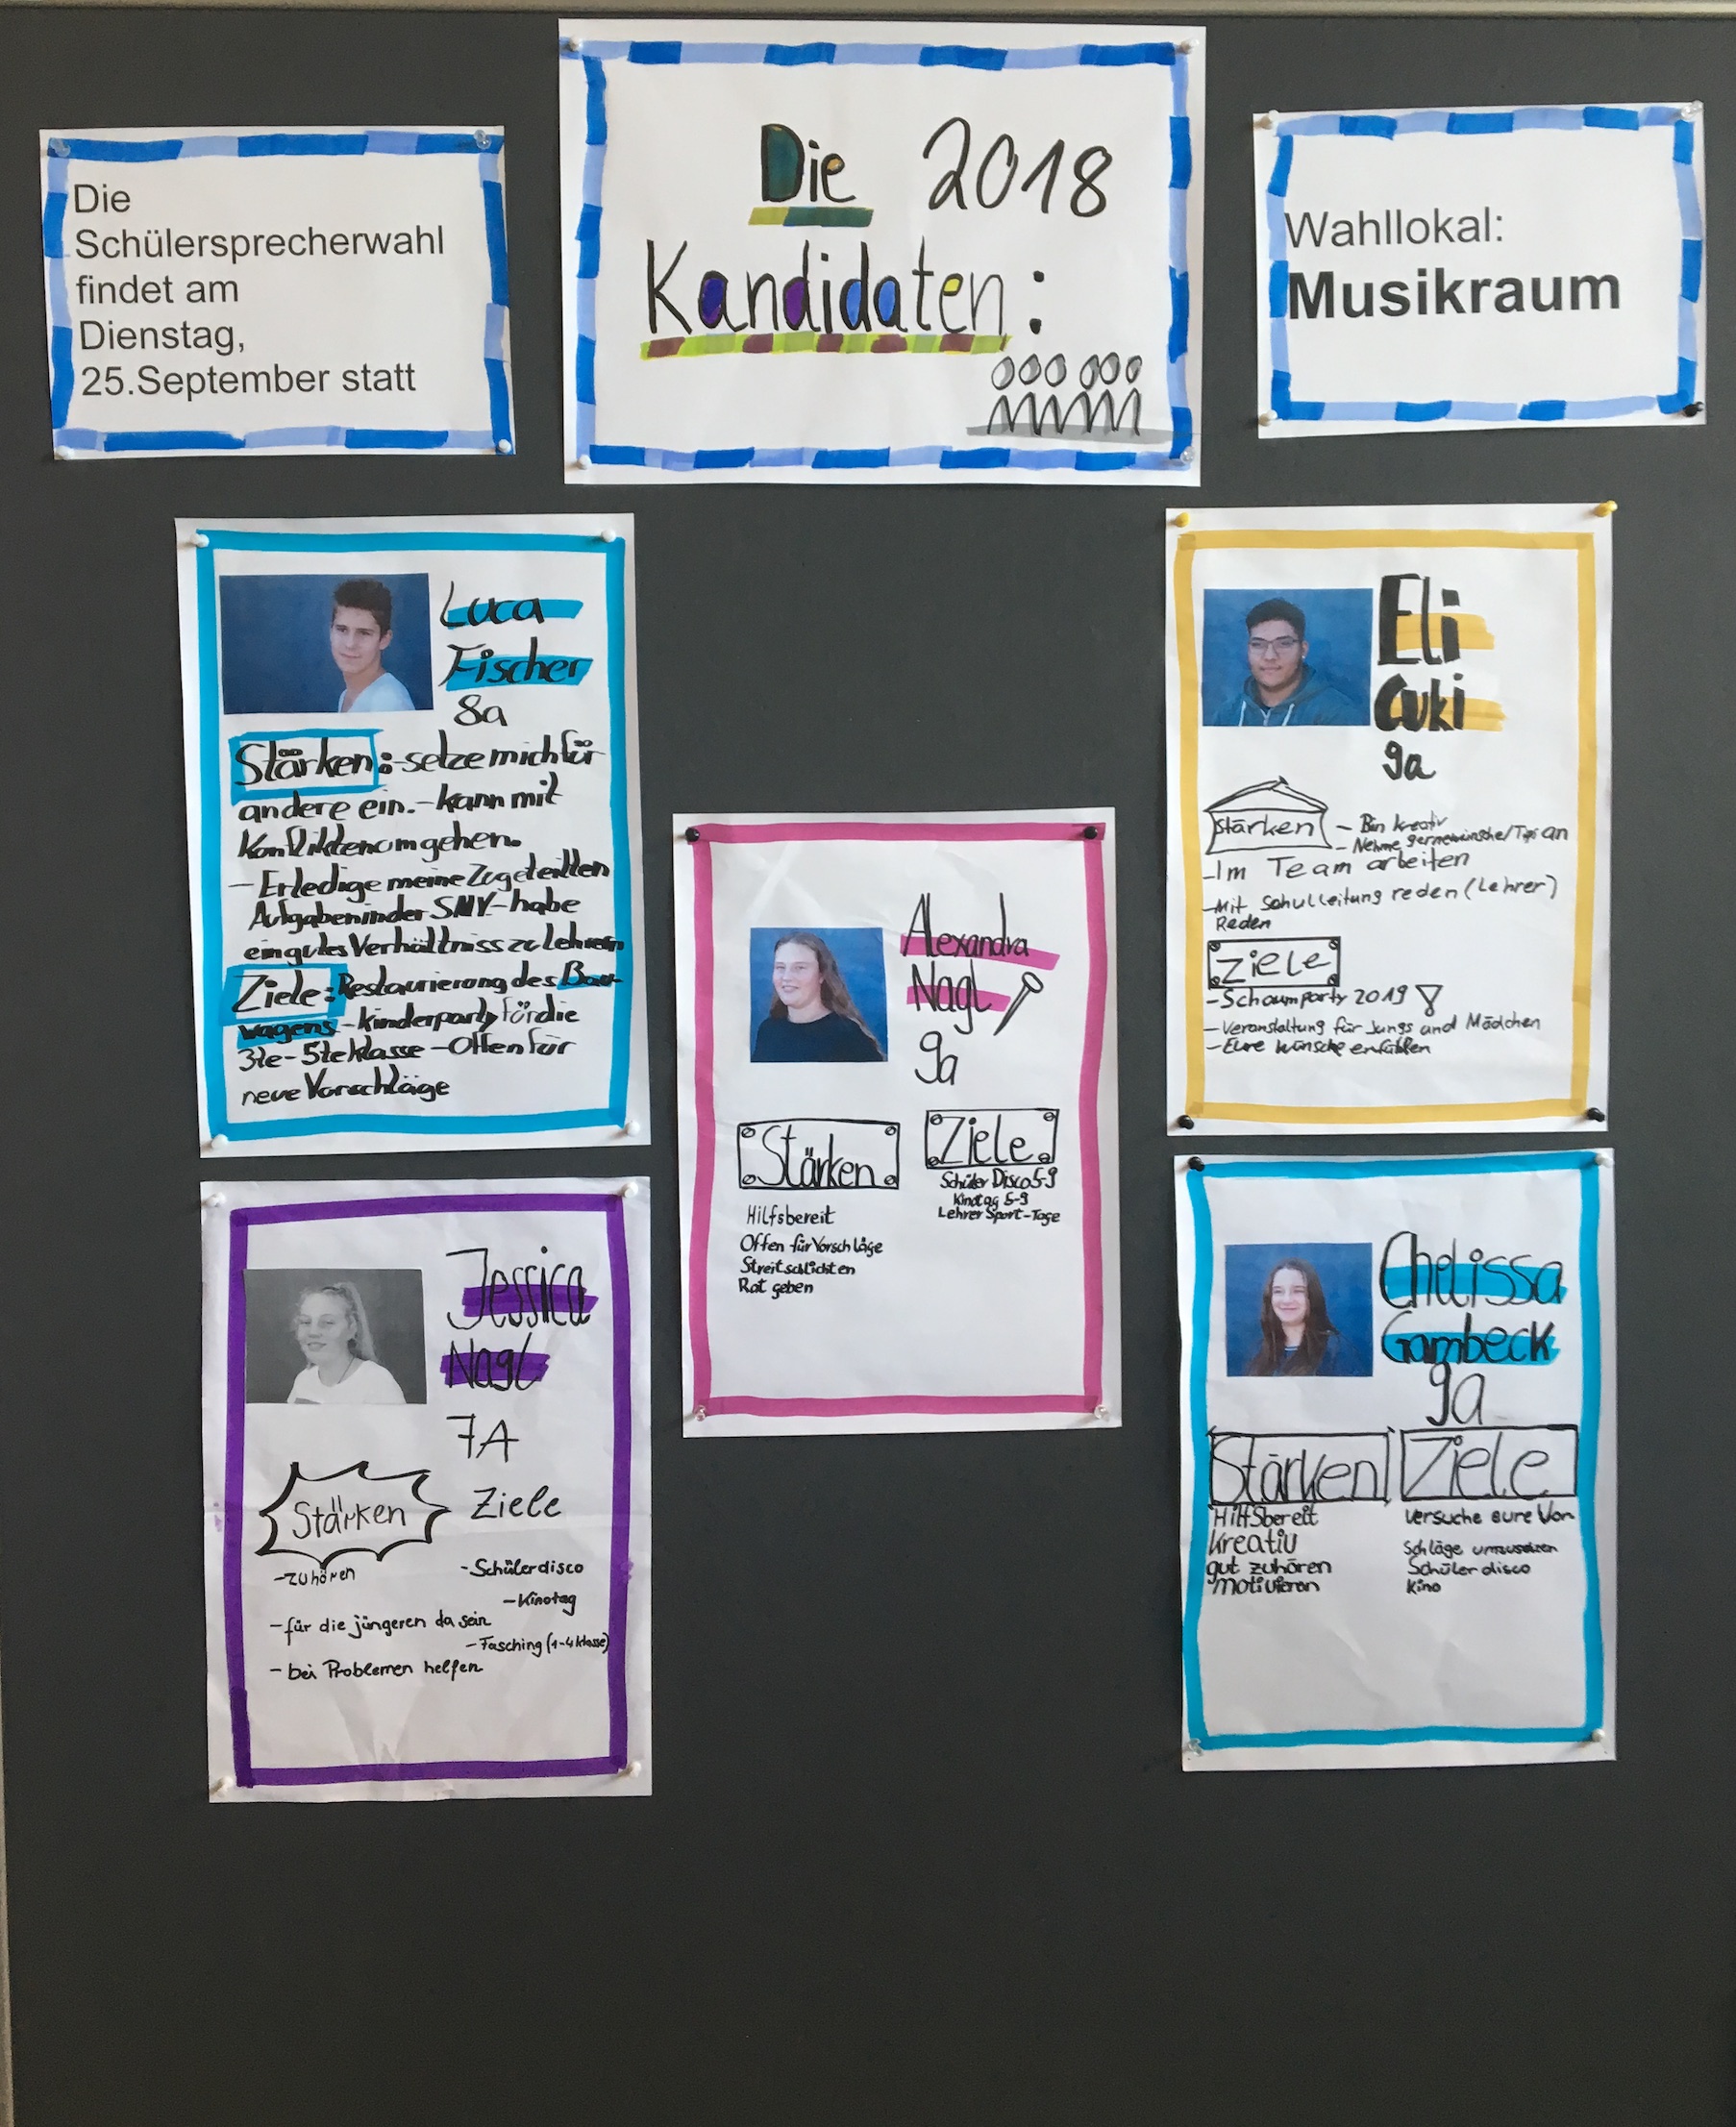 Die
Schülersprecherwahl
findet am
Dienstag,
25.September statt
Die 2018
Kandidaten:
Wahllokal:
Musikraum
Luca
Fischer
8a
Stärken:-setze mich für
andere ein.-kann mit
Konflikten umgehen.
-Erledige meine Zugeteilten
Aufgaben in der SMV-habe
ein gutes Verhältniss zu Lehrern
Ziele:Restaurierung des Bau-
wagens-kinderparty für die
3te-5te klasse-Offen für
neue Vorschläge
Eli
Cuki
9a
Stärken - Bin kreativ
- Nehme gerne wünsche/Tips an
-Im Team arbeiten
-Mit Schulleitung reden (Lehrer)
Reden
Ziele
-Schaumparty 2019
-Veranstaltung für Jungs und Mädchen
-Eure wünsche erfüllen
Alexandra
Nagl
9a
Stärken
Hilfsbereit
Offen für Vorschläge
Streit schlichten
Rat geben
Ziele
Schüler Disco 5-9
Kinotag 5-9
Lehrer Sport-Tage
Jessica
Nagl
7A
Stärken
-zuhören
-für die jüngeren da sein
- bei Problemen helfen
Ziele
-Schülerdisco
-Kinotag
-Fasching (1-4 klasse)
Chelissa
Gambeck
9a
Stärken
Hilfsbereit
kreativ
gut zuhören
motivieren
Ziele
versuche eure Vor
schläge umzusetzen
Schüler disco
Kino